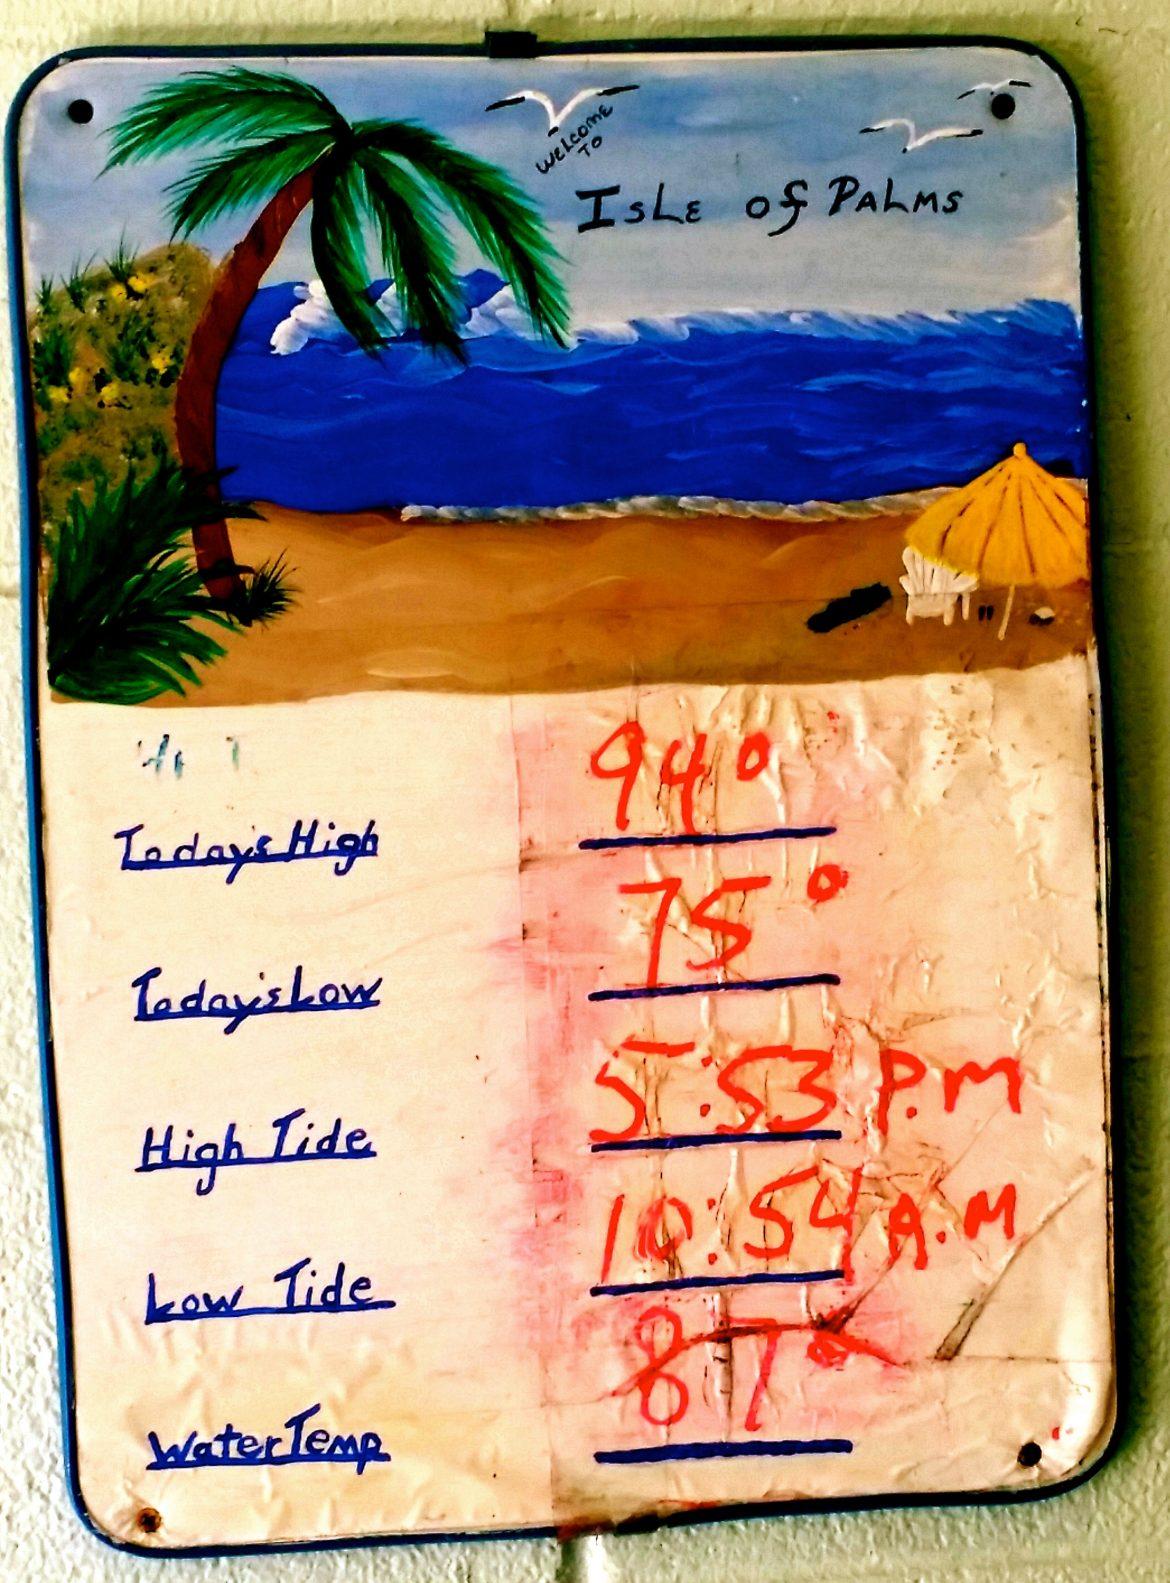 WELCOME
TO
ISLE of PALMS
94°
Today's High
75°
Today's Low
5:53 P.M
High Tide
10:54 A.M
Low Tide
87°
Water Temp